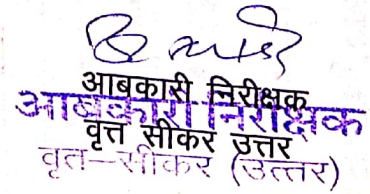 आबकारी निरीक्षक
आबकारी निरीक्षक
वृत्त सीकर उत्तर
वृत–सीकर (उत्तर)